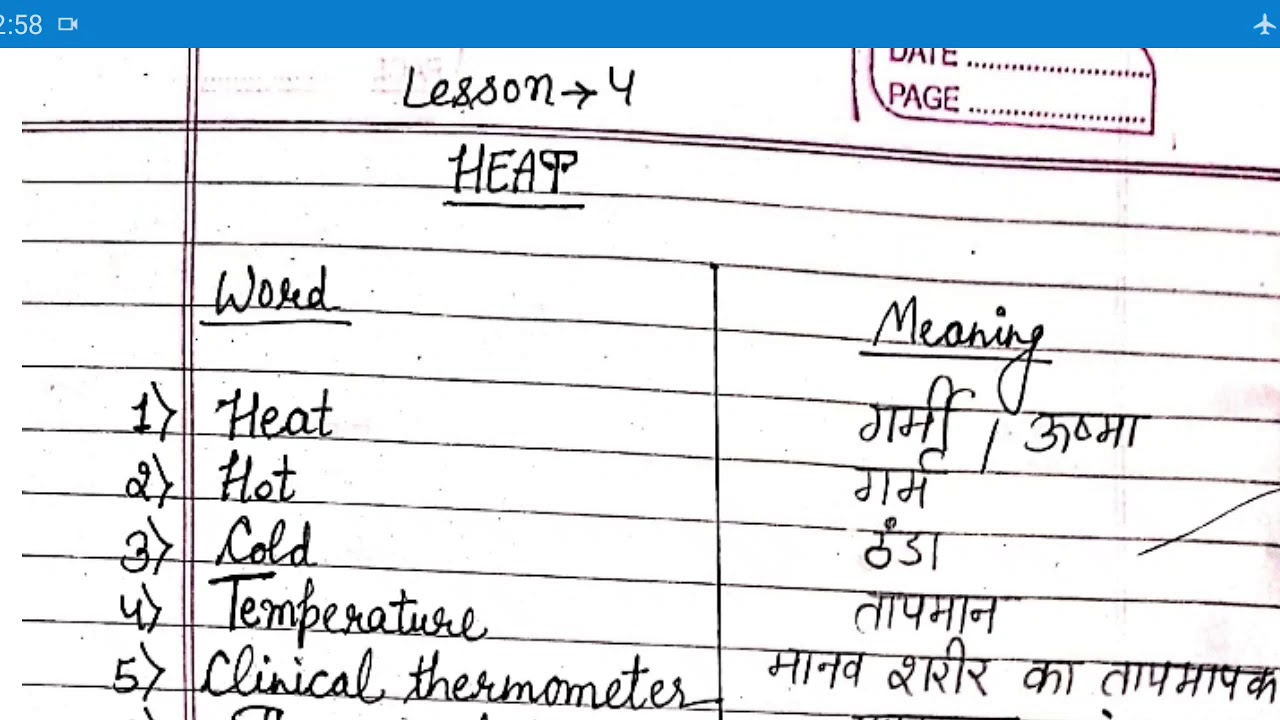 2:58
DATE
PAGE
Lesson → 4
HEAT
Word Meaning
1) Heat गर्मी / ऊष्मा
2) Hot गर्म
3) Cold ठंडा
4) Temperature तापमान
5) Clinical thermometer मानव शरीर का तापमापक